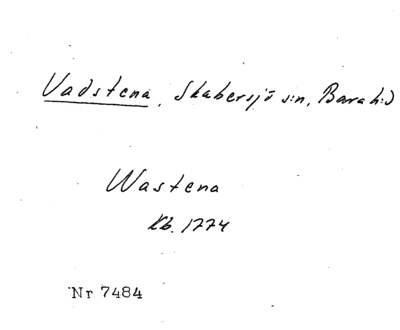 Vadstena, Skabersjö s:n, Bara h:d
Wastena
Kb. 1774
Nr 7484